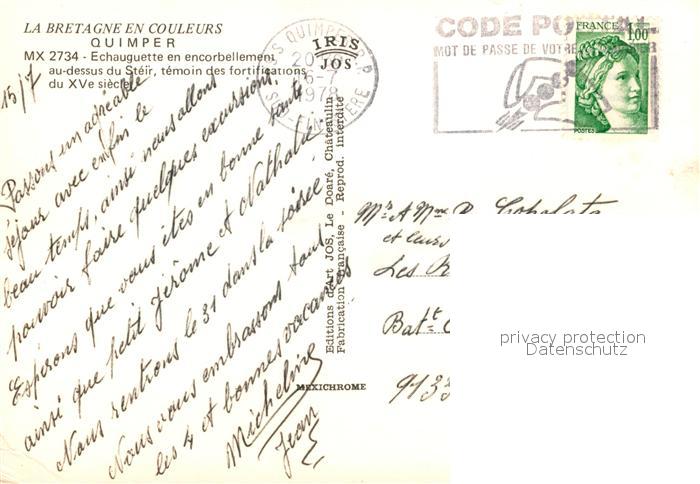 LA BRETAGNE EN COULEURS
QUIMPER
MX 2734 - Echauguette en encorbellement
au-dessus du Stéir, témoin des fortifications
du XVe siècle
IRIS
JOS
QUIMPER
1978
FINISTERE
CODE POSTAL
MOT DE PASSE DE VOTRE
FRANCE
1,00
POSTES
15/7
Passons un agréable
séjour avec enfin le
beau temps, ainsi nous allons
pouvoir faire quelques excursions.
Espérons que vous êtes en bonne santé
ainsi que petit Jérôme et Nathalie
Nous rentrons le 31 dans la soirée
Nous vous embrassons tous
les 4 et bonnes vacances
Micheline
Jean
Editions d'Art JOS, Le Doaré, Châteaulin
Fabrication Française - Reprod. interdite
MEXICHROME
Mr & Mme
et leurs
Les
Bat:t C
9133
privacy protection
Datenschutz